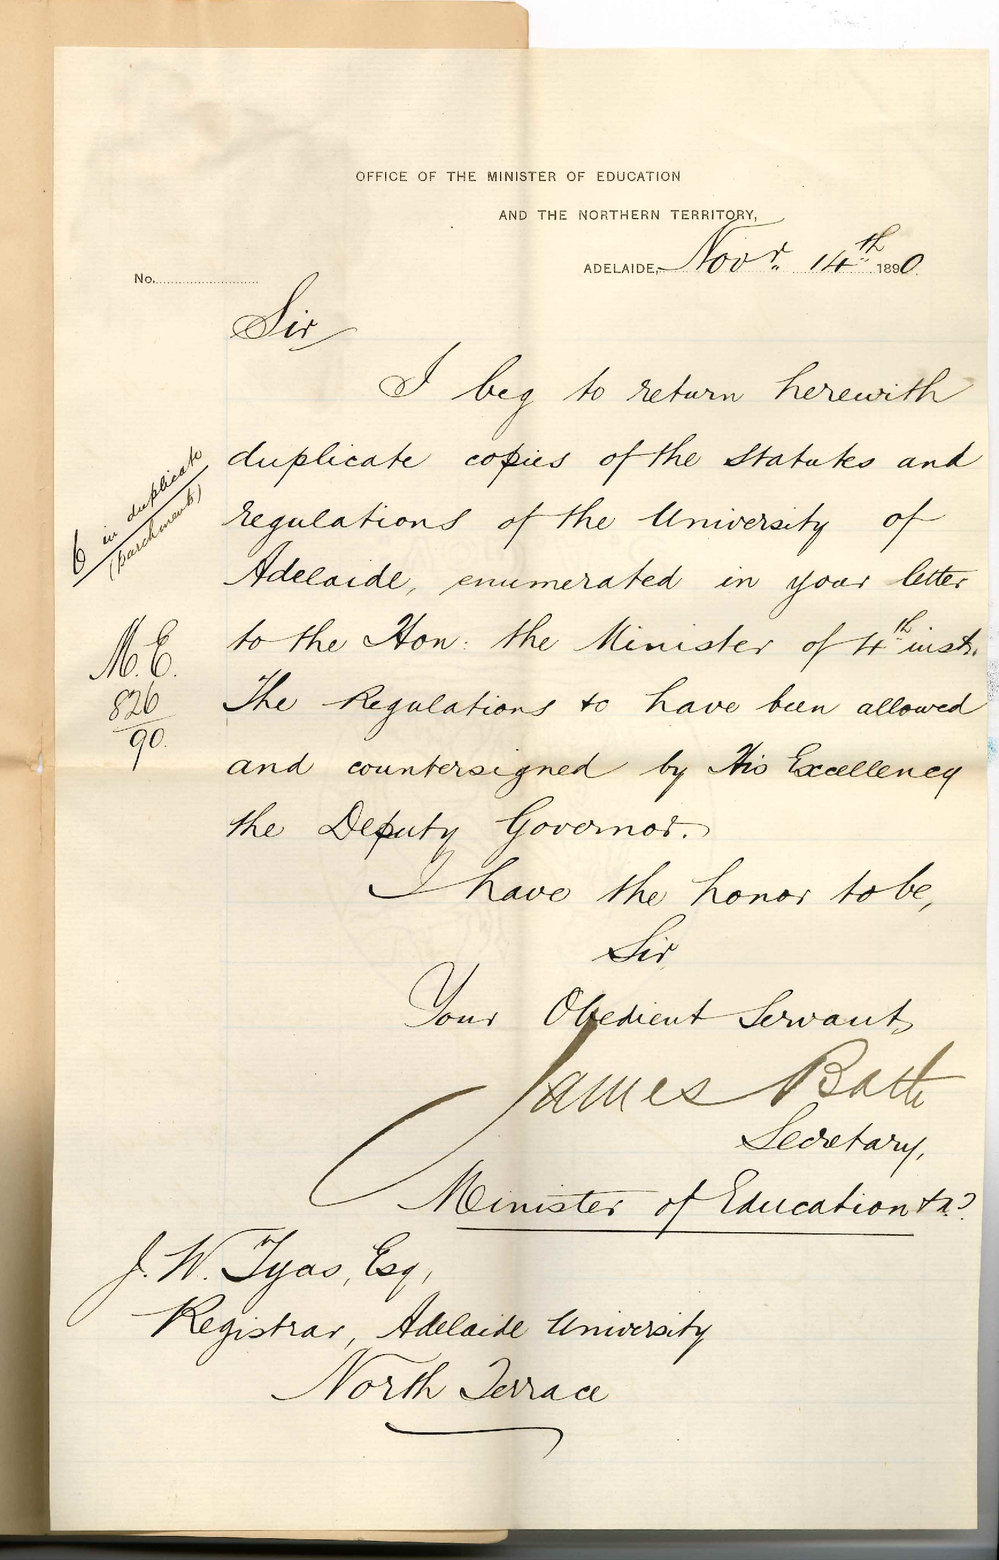 OFFICE OF THE MINISTER OF EDUCATION
AND THE NORTHERN TERRITORY,
ADELAIDE, Novr. 14th 1890.
No.
Sir
I beg to return herewith
duplicate copies of the Statutes and
regulations of the University of
Adelaide, enumerated in your letter
to the Hon: the Minister of 4th inst.
The Regulations &c have been allowed
and countersigned by His Excellency
the Deputy Governor.
I have the honor to be,
Sir
Your Obedient Servant,
James Bath
Secretary,
Minister of Education &c
6 in duplicate
(parchment)
M.E.
826
90.
J. W. Tyas, Esq,
Registrar, Adelaide University
North Terrace